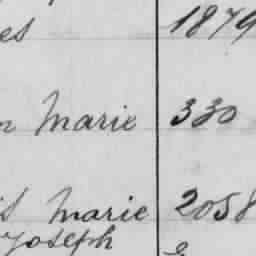 es 1879
n Marie 330
is Marie 2058
Joseph